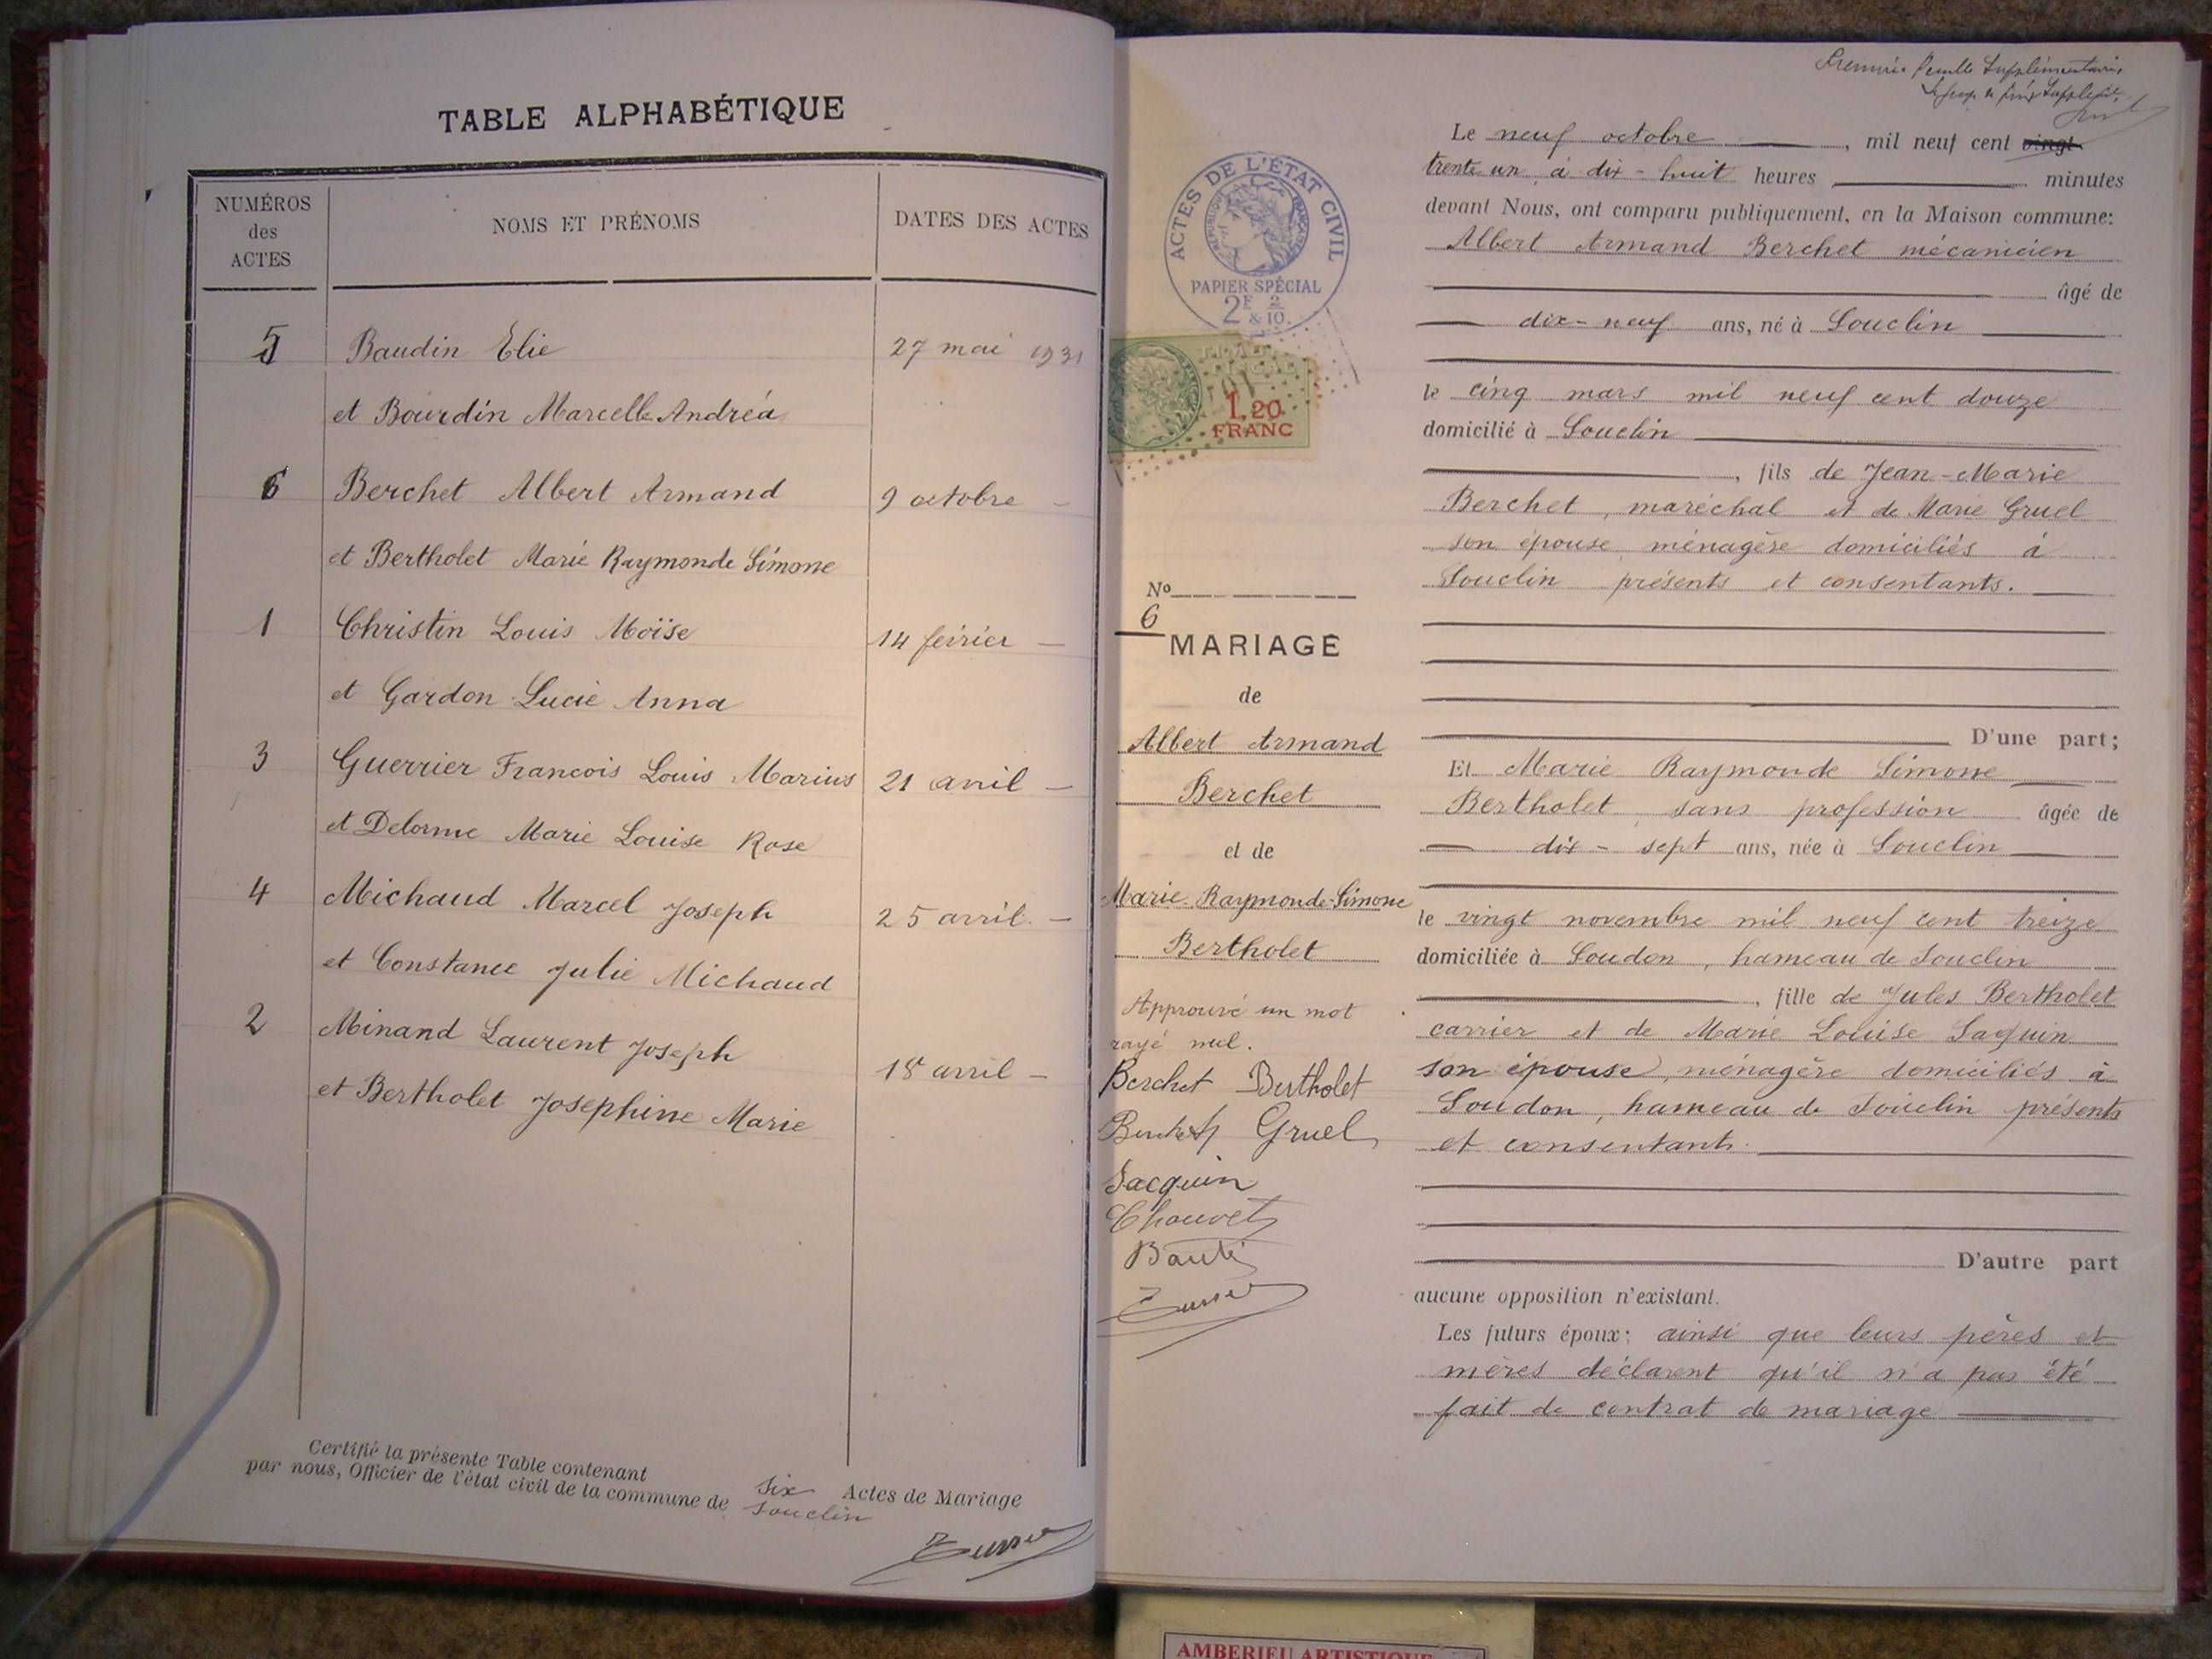 TABLE ALPHABÉTIQUE
NUMÉROS
des
ACTES
NOMS ET PRÉNOMS
DATES DES ACTES
5 Baudin Elie 27 mai 1931
et Bourdin Marcelle Andréa
6 Berchet Albert Armand 9 octobre -
et Bertholet Marie Raymonde Simone
1 Christin Louis Moïse 14 février -
et Gardon Lucie Anna
3 Guerrier Francois Louis Marius 21 avril -
et Delorme Marie Louise Rose
4 Michaud Marcel Joseph 25 avril -
et Constance Julie Michaud
2 Minand Laurent Joseph
18 avril -
et Bertholet Josephine Marie
Certifié la présente Table contenant six Actes de Mariage
par nous, Officier de l'état civil de la commune de Souclin
ACTES DE L'ÉTAT CIVIL
RÉPUBLIQUE FRANÇAISE
PAPIER SPÉCIAL
2F 2
& 10
1,20
FRANC
No
6
MARIAGE
de
Albert Armand
Berchet
et de
Marie Raymonde Simone
Bertholet
Approuvé un mot
rayé nul.
Berchet Bertholet
Berchet Gruel
Jacquin
Chauvet
Première feuille Supplémentaire
Le neuf octobre, mil neuf cent vingt
trente un, à dix-huit heures minutes
devant Nous, ont comparu publiquement, en la Maison commune:
Albert Armand Berchet mécanicien
âgé de
dix-neuf ans, né à Souclin
le cinq mars mil neuf cent douze
domicilié à Souclin
, fils de Jean-Marie
Berchet, maréchal et de Marie Gruel
son épouse ménagère domiciliés à
Souclin présents et consentants.
D'une part;
Et Marie Raymonde Simone
Bertholet, sans profession âgée de
dix-sept ans, née à Souclin
le vingt novembre mil neuf cent treize
domiciliée à Soudon, hameau de Souclin
, fille de Jules Bertholet
carrier et de Marie Louise Jaquin
son épouse, ménagère domiciliés à
Soudon, hameau de Souclin présents
et consentants.
D'autre part
aucune opposition n'existant.
Les futurs époux; ainsi que leurs pères et
mères déclarent qu'il n'a pas été
fait de contrat de mariage
AMBERIEU ARTISTIQUE